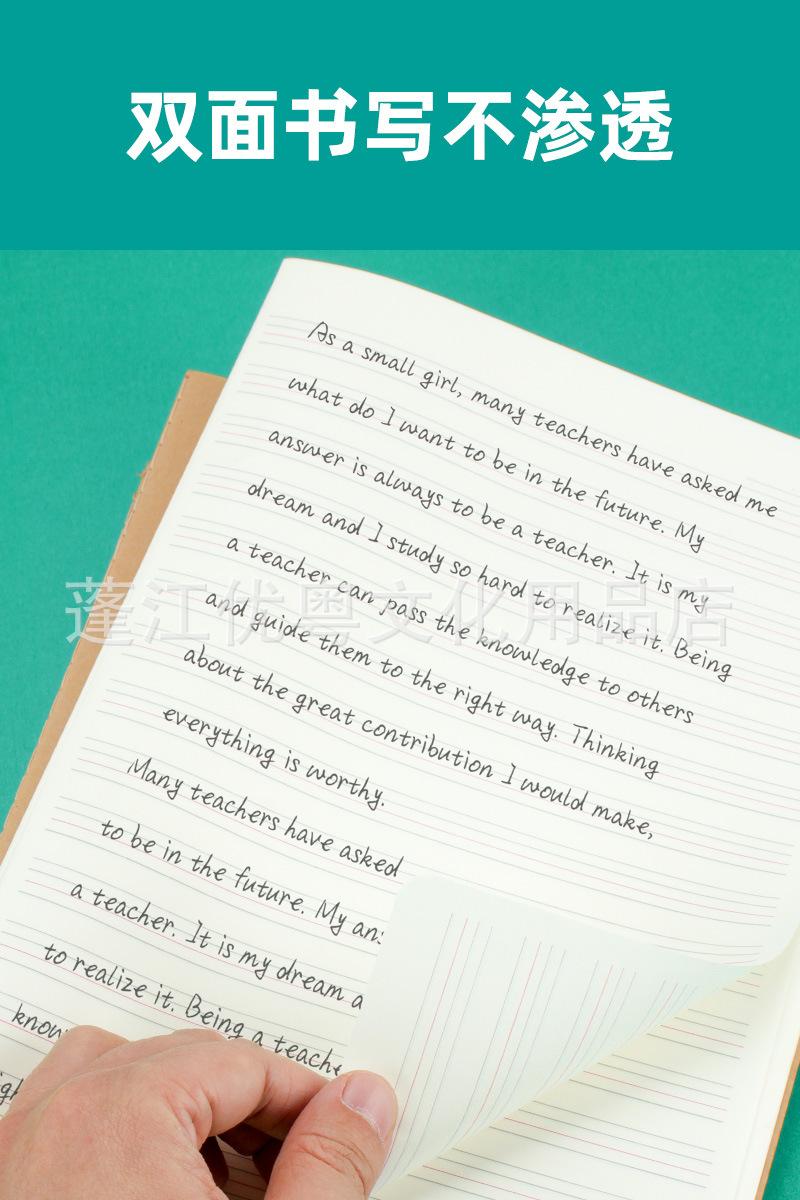 双面书写不渗透
As a small girl, many teachers have asked me
what do I want to be in the future. My
answer is always to be a teacher. It is my
dream and I study so hard to realize it. Being
a teacher can pass the knowledge to others
and guide them to the right way. Thinking
about the great contribution I would make,
everything is worthy.
Many teachers have asked
to be in the future. My ans
a teacher. It is my dream a
to realize it. Being a teache
know
蓬江优粤文化用品店